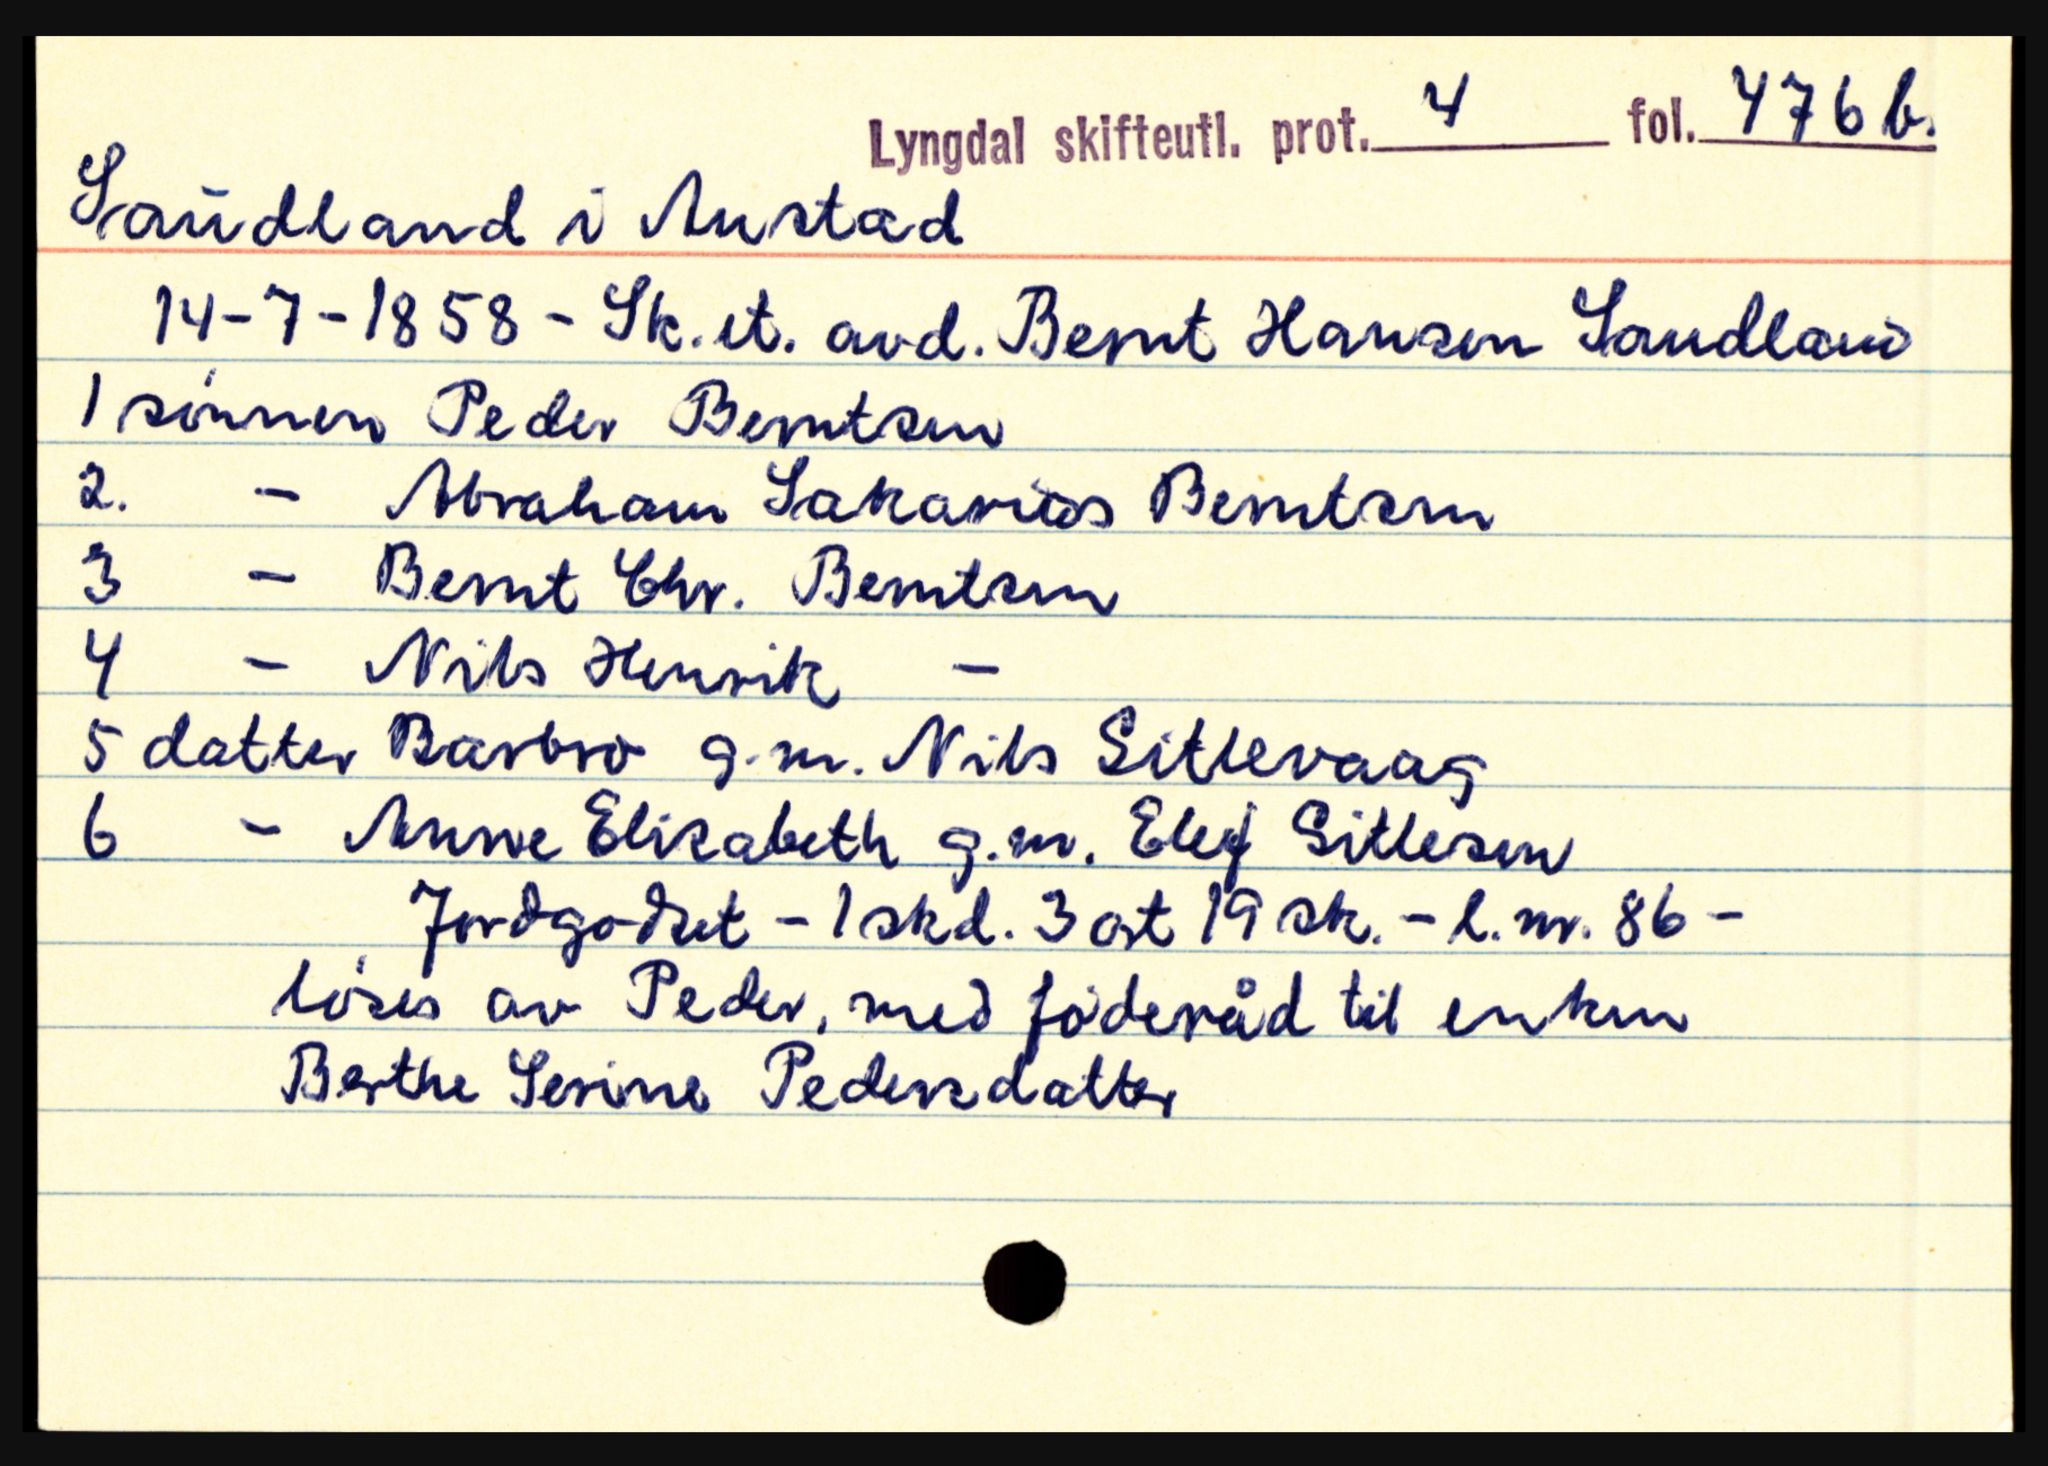 Lyngdal skifteutl. prot. 4 fol. 476 b.
Saudland i Austad
14-7-1858 - Sk. et. avd. Bernt Hansen Saudland
1 sønnen Peder Berntsen
2. - Abraham Sakarias Berntsen
3 - Bernt Chr. Berntsen
4 - Nils Henrik -
5 datter Barbro g.m. Nils Sitlevaag
6 - Anne Elisabeth g.m. Elef Sitlesen
Jordgodset - 1 skd. 3 ort 19 sk. - l. nr. 86 -
løses av Peder, med føderåd til enken
Berthe Serine Pedersdatter